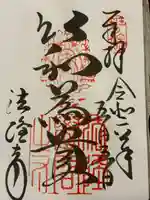 奉拝
令和 年
五月 日
以和為貴
法隆寺